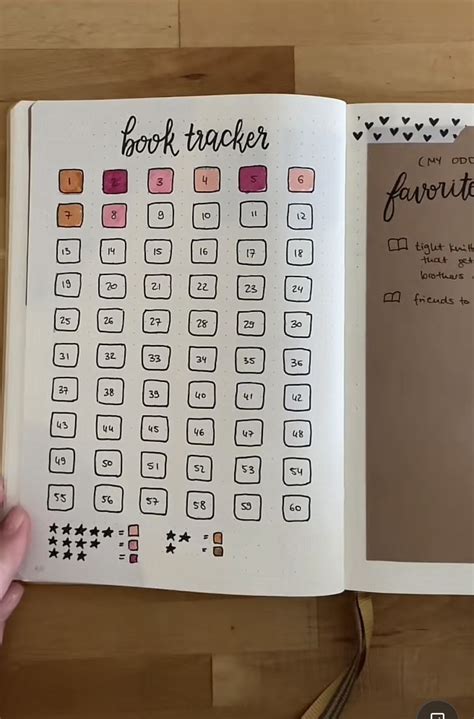 book tracker
1 2 3 4 5 6
7 8 9 10 11 12
13 14 15 16 17 18
19 20 21 22 23 24
25 26 27 28 29 30
31 32 33 34 35 36
37 38 39 40 41 42
43 44 45 46 47 48
49 50 51 52 53 54
55 56 57 58 59 60
★★★★★ =
★★★★ =
★★★ =
★★ =
★ =
(MY ODD
favorite
tight knit
that get
brothers
friends to